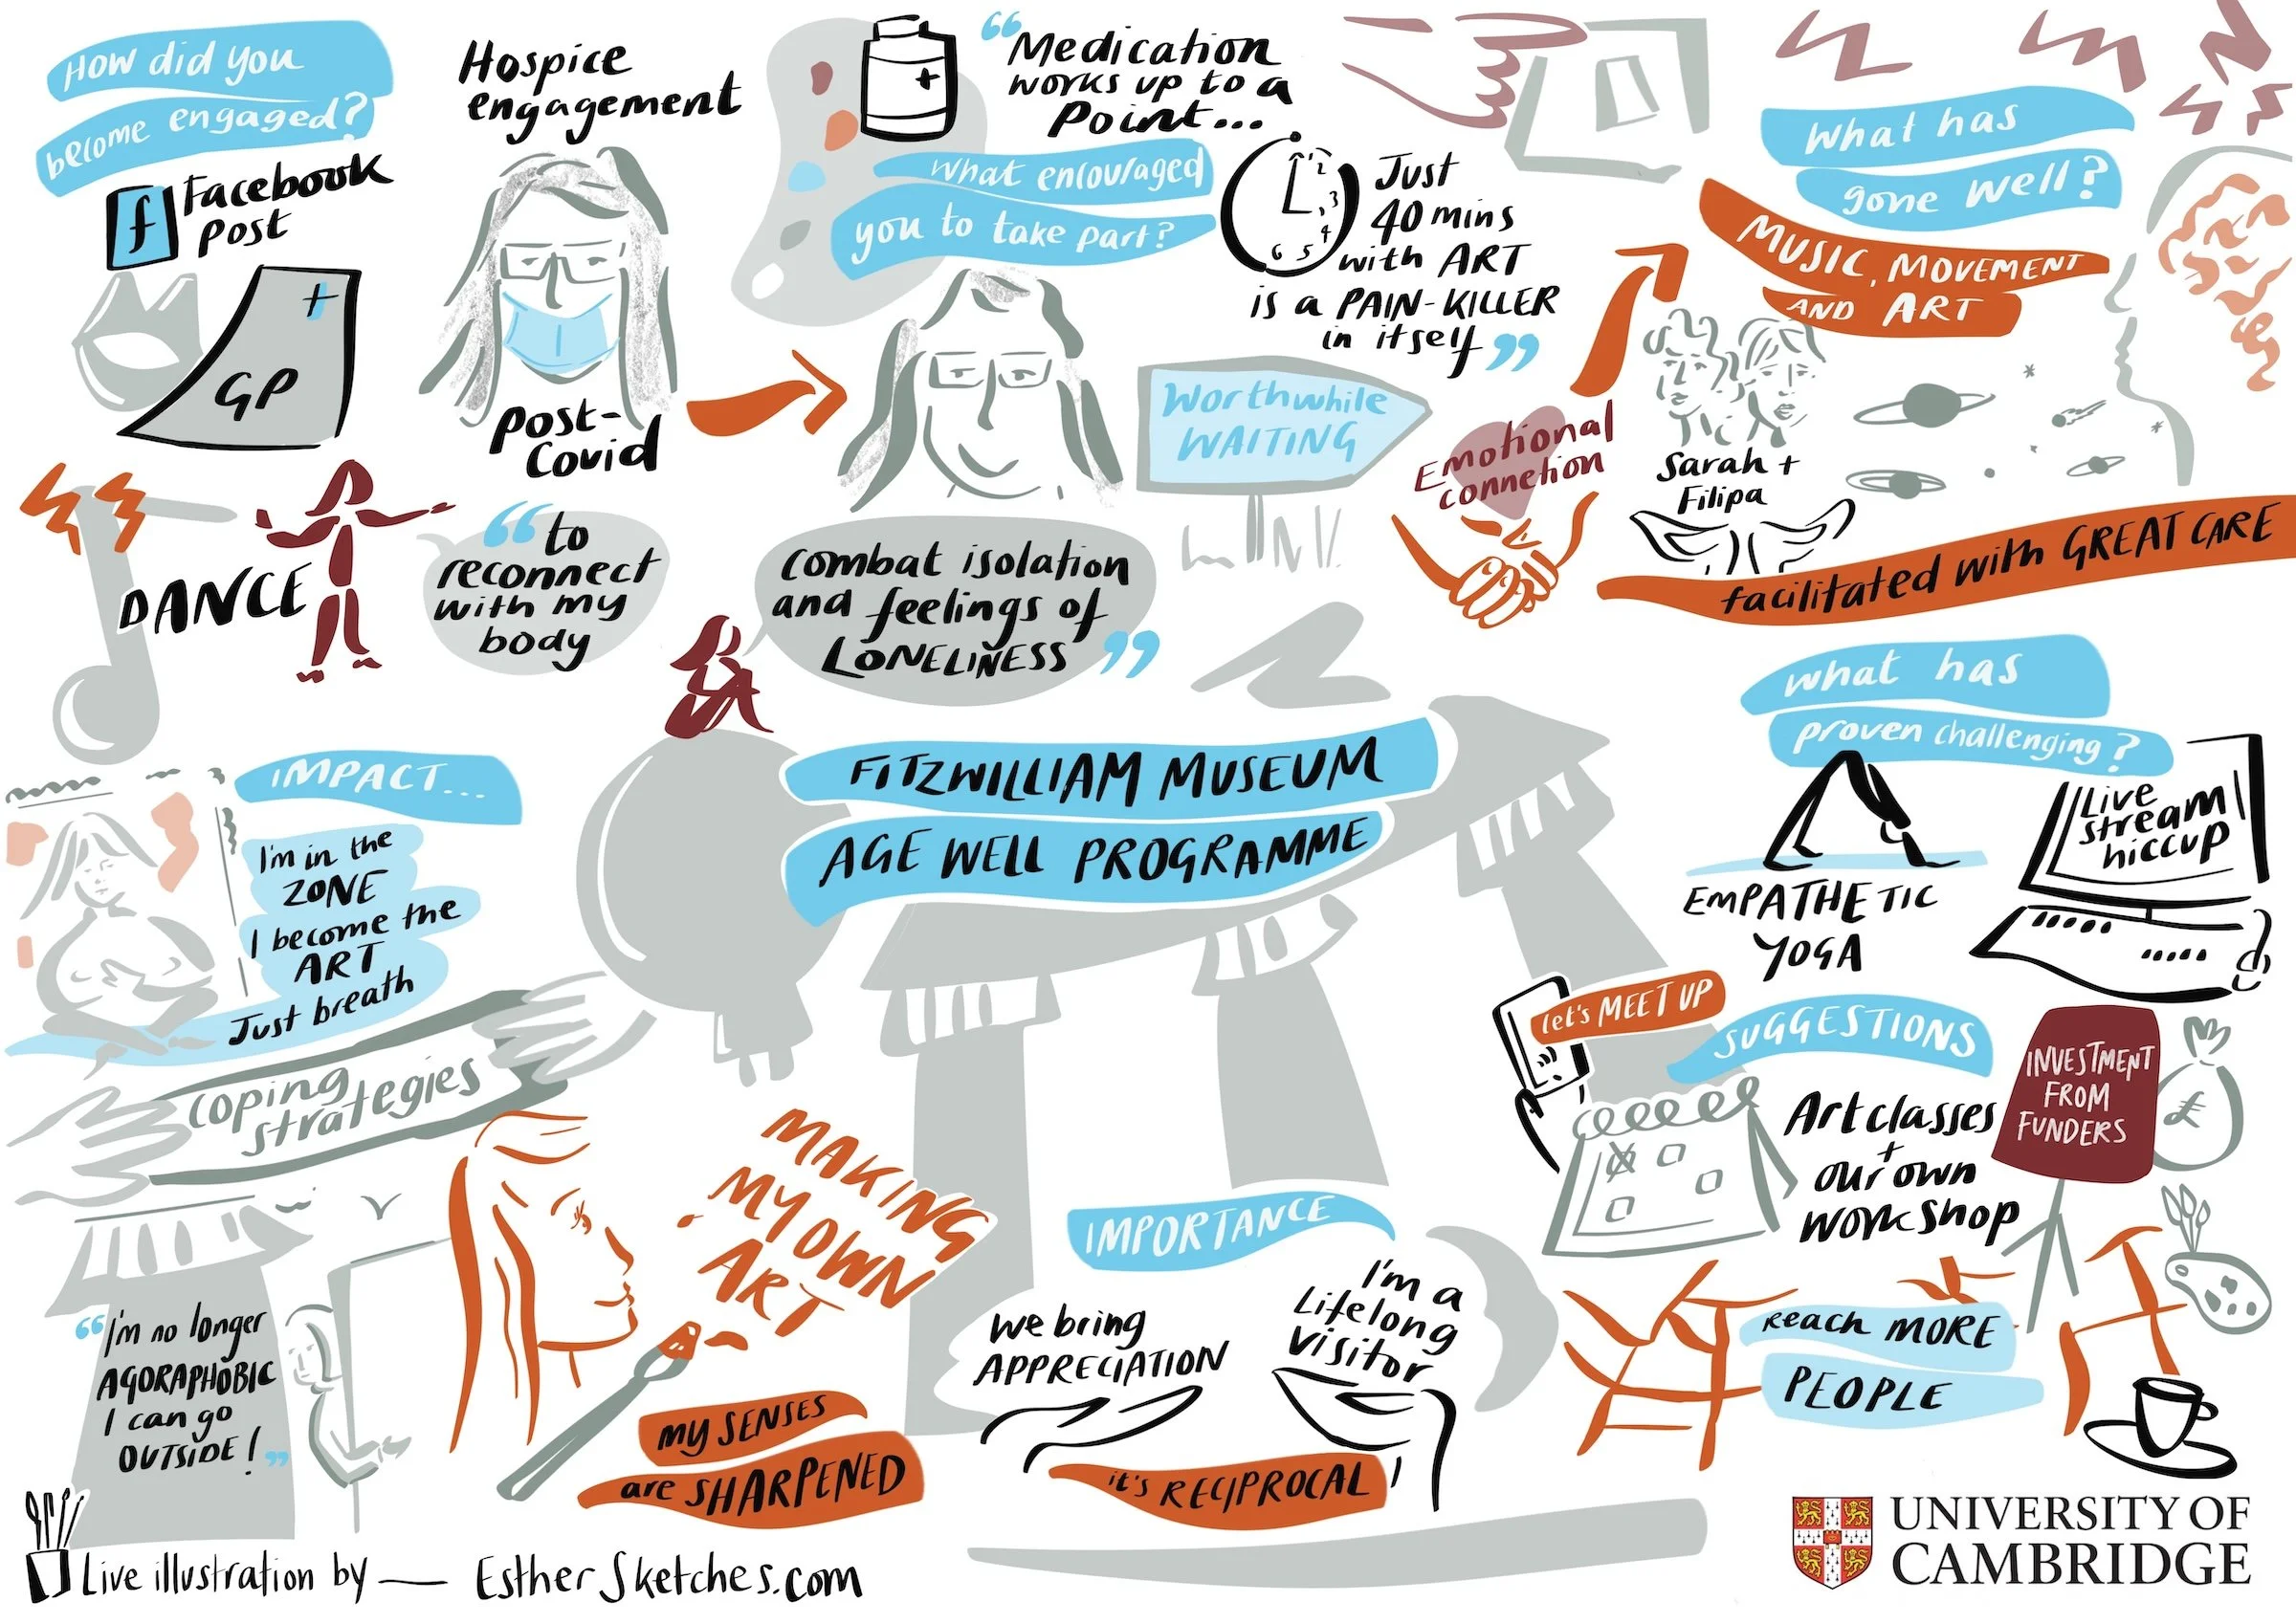 How did you
become engaged?
f
Facebook
Post
+
GP
Hospice
engagement
Post-
Covid
+
“Medication
works up to a
Point...
What encouraged
you to take part?
12
3
4
5
6
Just
40 mins
with ART
is a PAIN-KILLER
in itself”
Worthwhile
WAITING
What has
gone well?
MUSIC, MOVEMENT
AND ART
Emotional
connetion
Sarah +
Filipa
facilitated with GREAT CARE
DANCE
“to
reconnect
with my
body
combat isolation
and feelings of
LONELINESS”
FITZWILLIAM MUSEUM
AGE WELL PROGRAMME
what has
proven challenging?
EMPATHETIC
YOGA
Live
stream
hiccup
IMPACT...
I'm in the
ZONE
I become the
ART
Just breath
coping
strategies
let's MEET UP
SUGGESTIONS
Art classes
+
our own
workshop
INVESTMENT
FROM
FUNDERS
£
Reach MORE
PEOPLE
MAKING
MY OWN
ART
MY SENSES
are SHARPENED
IMPORTANCE
we bring
APPRECIATION
I'm a
Lifelong
visitor
it's RECIPROCAL
“I'm no longer
AGORAPHOBIC
I can go
OUTSIDE!”
Live illustration by — EstherSketches.com
UNIVERSITY OF
CAMBRIDGE